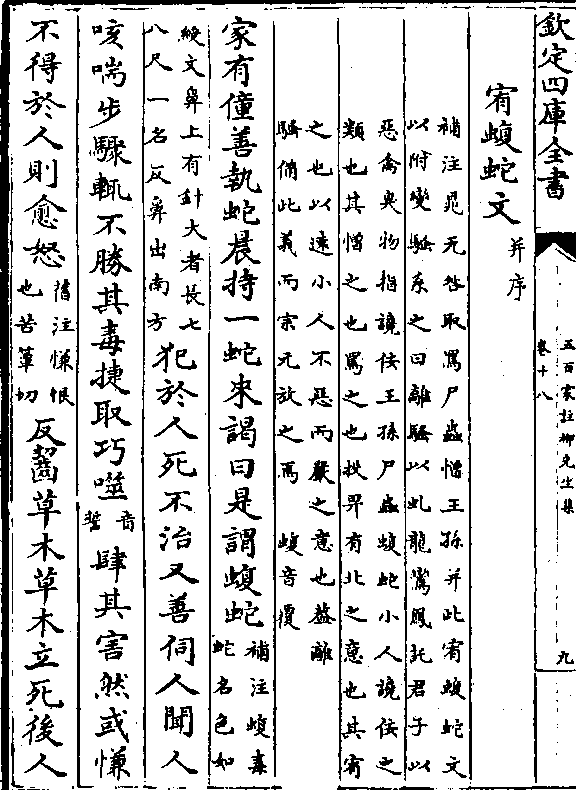 欽定四庫全書
五百家註柳先生集
卷十八
九
宥蝮蛇文 并序
補注晁无咎取罵尸蟲憎王孫并此宥蝮蛇文
以附變騷系之曰離騷以虬龍鸞鳳託君子以
惡禽臭物指讒佞王孫尸蟲蝮蛇小人讒佞之
類也其憎之也罵之也投畀有北之意也其宥
之也以遠小人不惡而嚴之意也蓋離
騷備此義而宗元放之焉 蝮音覆
家有僮善執蛇晨持一蛇來謁曰是謂蝮蛇 補注蝮毒蛇名色如
綬文鼻上有針大者長七八尺一名反鼻出南方 犯於人死不治又善伺人聞人
咳喘步驟輒不勝其毒捷取巧噬 音誓 肆其害然或慊
不得於人則愈怒 補注慊恨也苦簟切 反齧草木草木立死後人